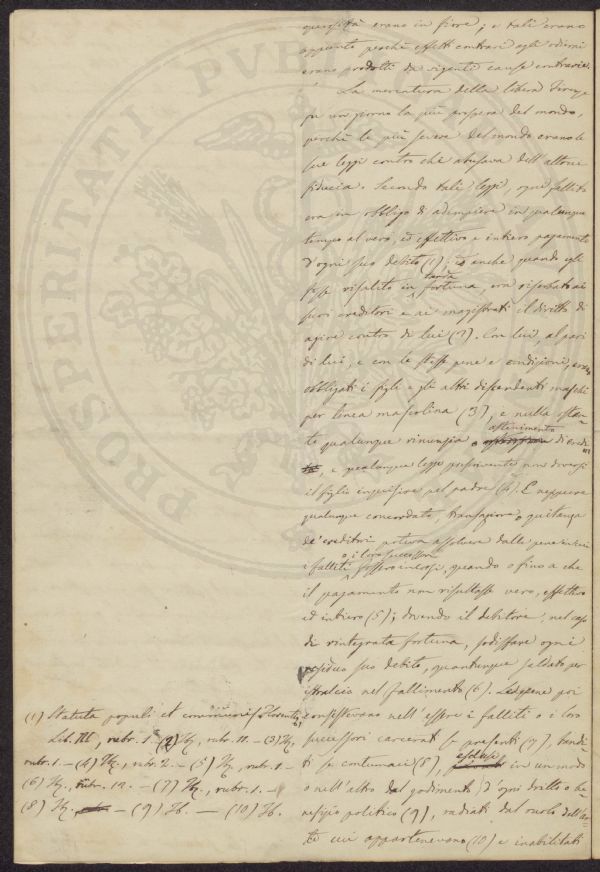 operosità erano in fiore; e tali erano
appunto perchè effetti contrari agli odierni
erano prodotti da vigenti cause contrarie.
La mercatura della libera Firenze
fu un giorno la più prospera del mondo,
perchè le più severe del mondo erano le
sue leggi contro chi abusava dell'altrui
fiducia. Secondo tali leggi, ogni fallito
era in obbligo di adempiere in qualunque
tempo al vero, ed effettivo e intiero pagamento
d'ogni suo debito (1); e anche quando egli
fosse risalito in tarda fortuna, era riserbato ai
suoi creditori e ai magistrati il diritto di
agire contro di lui (2). Con lui, al pari
di lui, e con le stesse pene e condizioni, erano
obbligati i figli e gli altri discendenti maschi
per linea mascolina (3), e nulla ostan-
te qualunque rinunzia o astenimento di eredi-
tà, e qualunque legge prescrivente non doversi
il figlio inquisire pel padre (4). E neppure
qualunque concordato, transazione o quitanza
de' creditori poteva assolvere dalle pene in cui
i falliti o i loro successori fossero incorsi, quando o fino a che
il pagamento non risultasse vero, effettivo
ed intiero (5); dovendo il debitore, nel caso
di rintegrata fortuna, sodisfare ogni
residuo suo debito, quantunque saldato per
istralcio nel fallimento (6). Le pene poi
consistevano nell'essere i falliti o i loro
successori carcerati se presenti (7), bandi-
ti se contumaci (8), esclusi in un modo
o nell'altro dal godimento d'ogni dritto o be-
nefizio politico (9), radiati dal ruolo dell'ar-
te cui appartenevano (10) e inabilitati
(1) Statuta populi et communis Florentiae,
Lib. III, rubr. 1. - (2) Iv, rubr. 11. - (3) Iv,
rubr. 1. - (4) Iv, rubr. 2. - (5) Iv, rubr. 1 -
(6) Iv, rubr. 12. - (7) Iv, rubr. 1. -
(8) Iv, - (9) Ib. - (10) Ib.
PROSPERITATI PVBLICAE